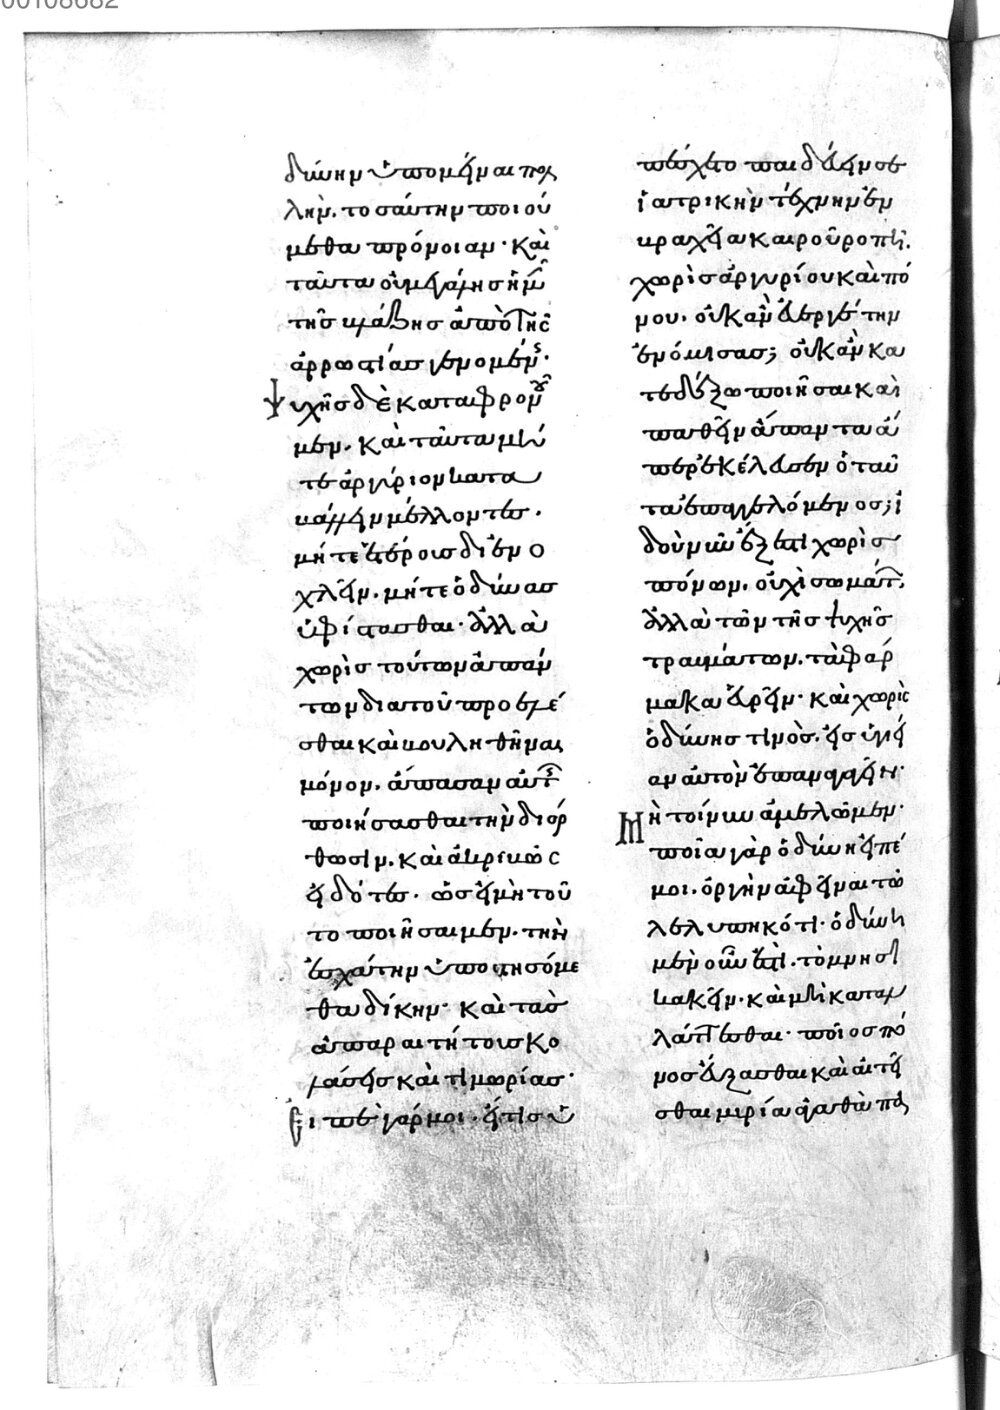 00108682
δύνην ὑπομεῖναι πολ
λήν. τοσαύτην ποιού
μεθα πρόνοιαν· καὶ
ταῦτα οὐ μεγάλης ἡμῖν
τῆς βλάβης ἀπὸ τῆς
ἀρρωστίας γενομένης·
ψυχῆς δὲ καταφρονοῦ
μεν. καὶ ταῦτα μήτε
τε ἀργύριον κατα
βάλλειν μέλλοντες.
μήτε ἑτέροις διενο
χλεῖν. μήτε ὀδύνας
ὑφίστασθαι· ἀλλὰ
χωρὶς τούτων ἁπάν
των διὰ τοῦ προελέ
σθαι καὶ βουληθῆναι
μόνον. ἅπασαν αὐτῆς
ποιήσασθαι τὴν διόρ
θωσιν. καὶ ἀκριβῶς
εἰδότες. ὡς εἰ μὴ τοῦ
το ποιήσαιμεν. τὴν
ἐσχάτην ὑποστησόμε
θα δίκην· καὶ τὰς
ἀπαραιτήτους κο
λάσεις καὶ τιμωρίας·
Εἰπὲ γάρ μοι. εἴ τις ὑ
πέσχετο παιδεύειν σε
ἰατρικὴν τέχνην ἐν
βραχεῖα καιροῦ ροπῆ.
χωρὶς ἀργυρίου καὶ πό
νου. οὐκ ἂν εὐεργέτην
ἐνόμισας; οὐκ ἂν κα
τεδέξω ποιῆσαι καὶ
παθεῖν ἅπαντα ἅ
περ ἐκέλευσεν ὁ ταῦ
τα ἐπαγγελόμενος; ἰ
δοὺ νῦν ἔξεστι χωρὶς
πόνων. οὐχὶ σωμάτων.
ἀλλὰ τῶν τῆς ψυχῆς
τραυμάτων. τὰ φάρ
μακα εὑρεῖν· καὶ χωρὶς
ὀδύνης τινὸς. εἰς ὑγεί
αν αὐτὸν ἐπαναγαγεῖν·
Μὴ τοίνυν ἀμελῶμεν·
ποία γὰρ ὀδύνη εἰπέ
μοι. ὀργὴν ἀφεῖναι τῶ
λελυπηκότι· ὀδύνη
μὲν οὖν ἐστι. τὸ μνησι
κακεῖν· καὶ μὴ καταλ
λάττεσθαι· ποῖος πό
νος εὔξασθαι καὶ αἰτῆ
σθαι μυρία ἀγαθὰ πα